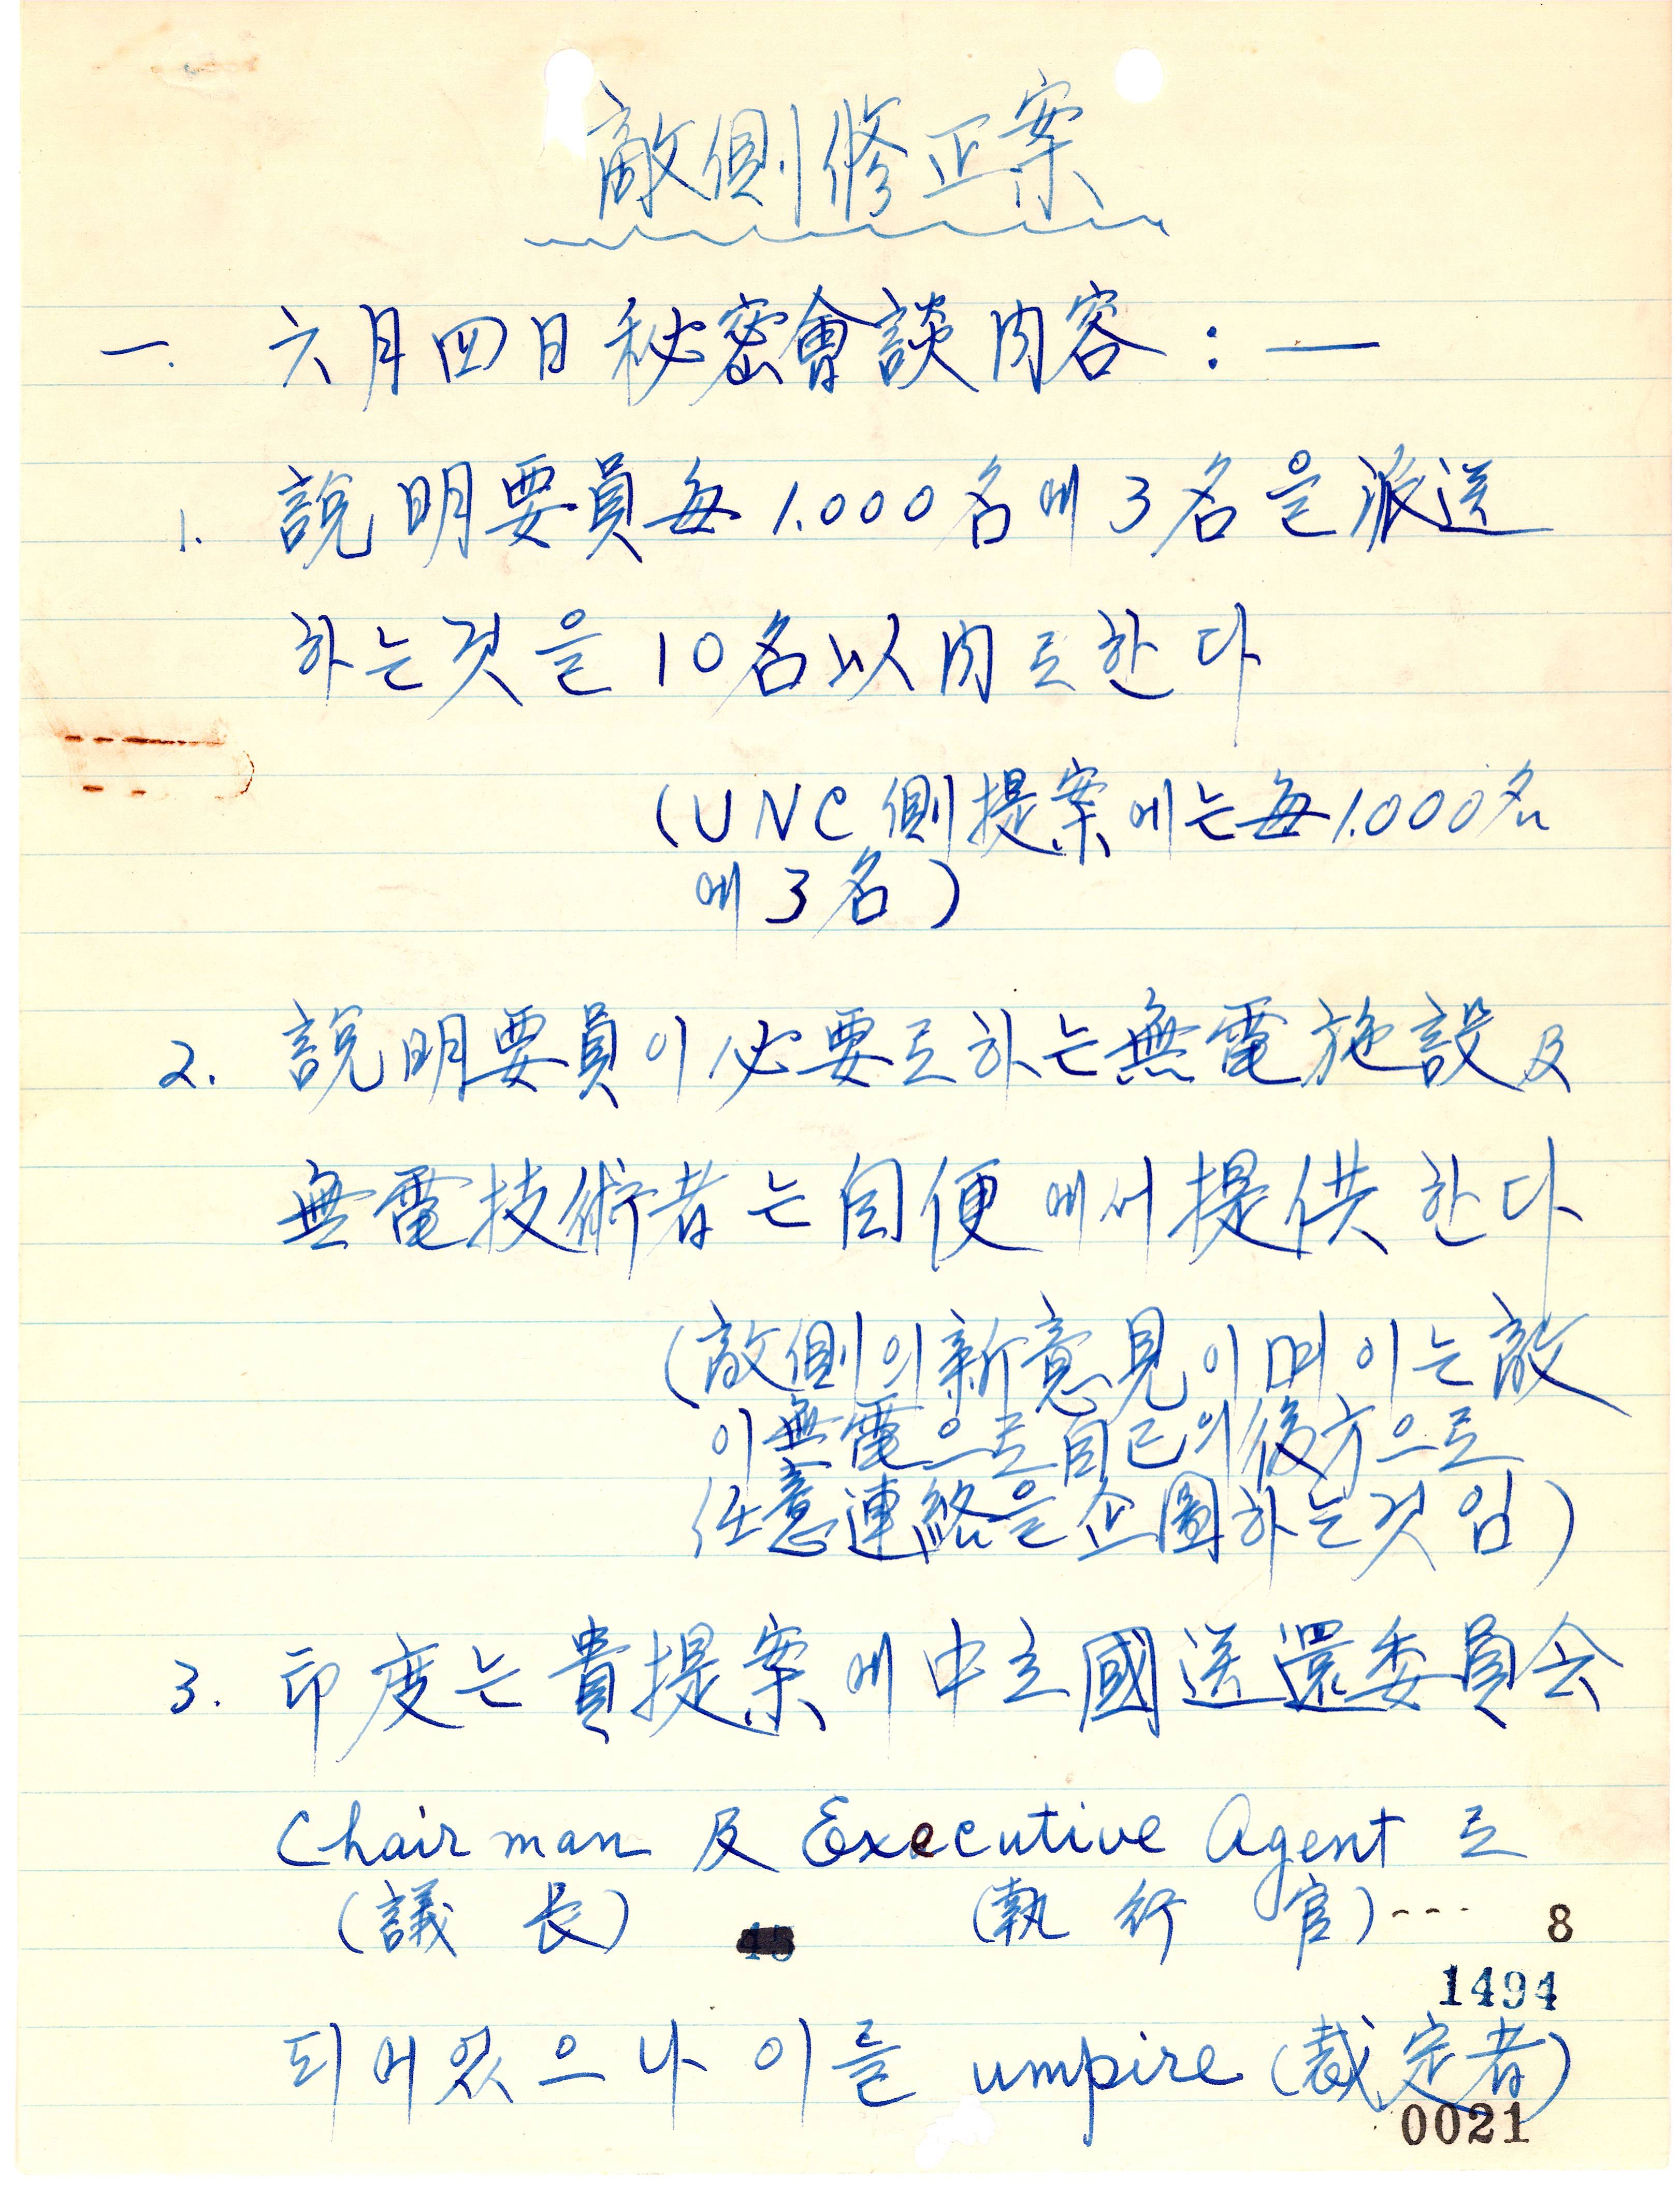 敵側修正案
一. 六月四日秘密會談內容 : —
1. 說明要員每 1.000名에 3名을 派送
하는것을 10名以內로한다
(UNC側提案에는每1.000名
에 3名)
2. 說明要員이必要로하는無電施設及
無電技術者는自便에서提供한다
(敵側의新意見이며이는敵
이無電으로自己의後方으로
任意連絡을企圖하는것임)
3. 印度는貴提案에中立國送還委員会
Chairman 及 Executive Agent 로
(議 長) (執 行 官)---
8
1494
되어있으나 이를 umpire (裁定者)
0021